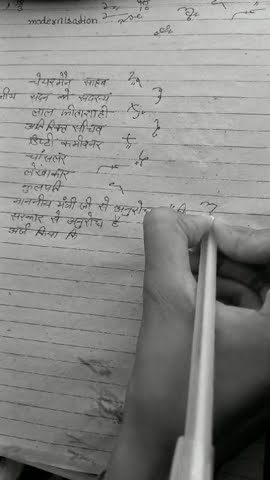 modernisation
चेयरमैन साहब
सदन के सदस्य
लाल फीताशाही
अतिरिक्त सचिव
डिप्टी कमीश्नर
चांसलर
लेखाकार
कुलपति
माननीय मंत्री जी से अनुरोध
सरकार से अनुरोध है
अर्ज किया कि